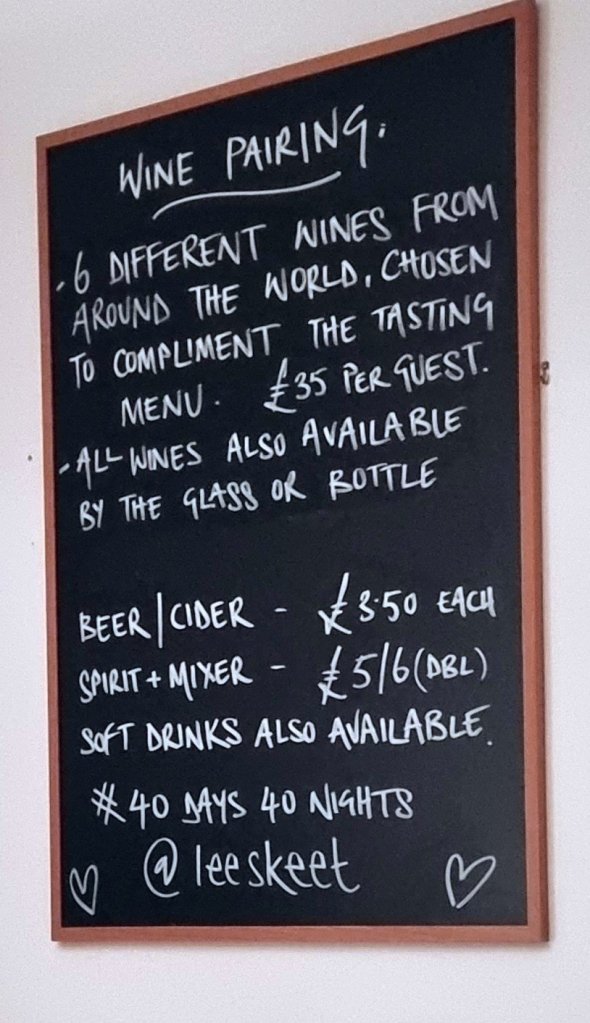 WINE PAIRING.
- 6 DIFFERENT WINES FROM
AROUND THE WORLD, CHOSEN
TO COMPLIMENT THE TASTING
MENU. £35 PER GUEST.
- ALL WINES ALSO AVAILABLE
BY THE GLASS OR BOTTLE
BEER/CIDER - £3.50 EACH
SPIRIT + MIXER - £5/6 (DBL)
SOFT DRINKS ALSO AVAILABLE.
# 40 DAYS 40 NIGHTS
@leeskeet